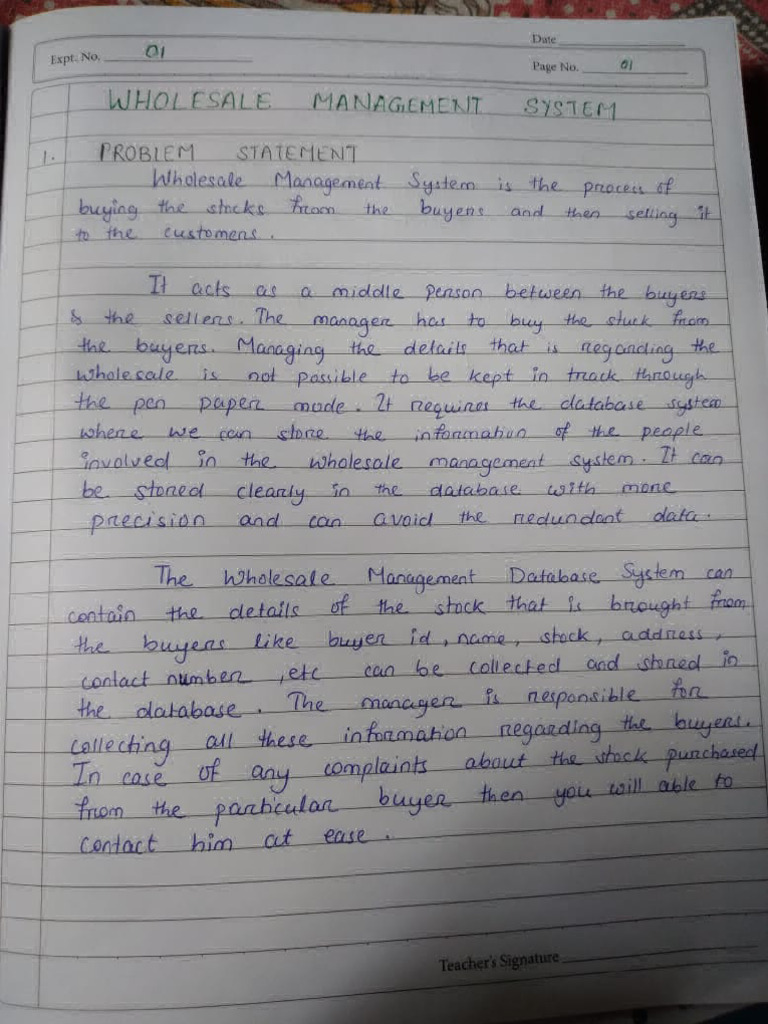 Date
Expt. No. 01
Page No. 01
WHOLESALE MANAGEMENT SYSTEM
1. PROBLEM STATEMENT
Wholesale Management System is the process of
buying the stocks from the buyers and then selling it
to the customers.
It acts as a middle person between the buyers
& the sellers. The manager has to buy the stock from
the buyers. Managing the details that is regarding the
wholesale is not possible to be kept in track through
the pen paper mode. It requires the database system
where we can store the information of the people
involved in the wholesale management system. It can
be stored clearly in the database with more
precision and can avoid the redundant data.
The Wholesale Management Database System can
contain the details of the stock that is brought from
the buyers like buyer id, name, stock, address,
contact number, etc can be collected and stored in
the database. The manager is responsible for
collecting all these information regarding the buyers.
In case of any complaints about the stock purchased
from the particular buyer then you will able to
contact him at ease.
Teacher's Signature